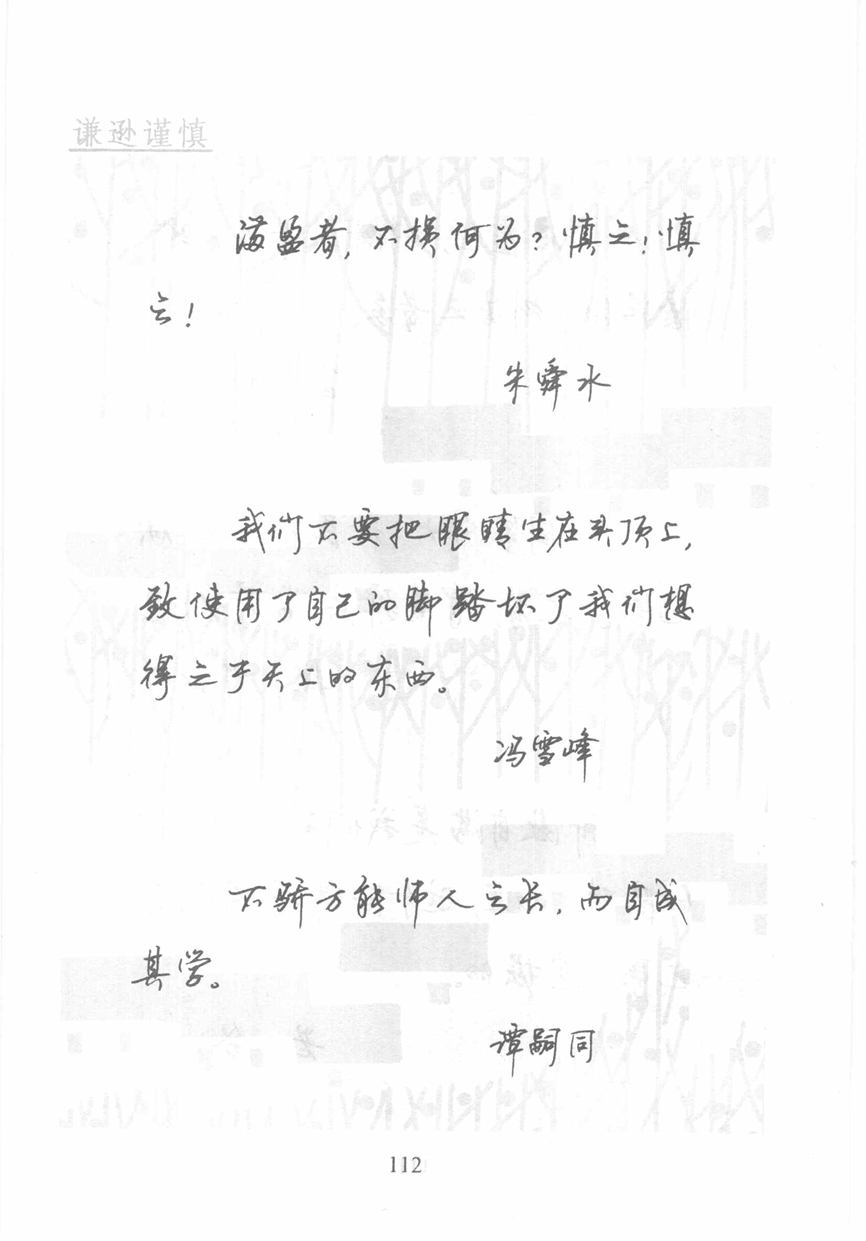 谦逊谨慎
满盈者，不损何为？慎之！慎
之！
朱舜水
我们不要把眼睛生在头顶上，
致使用了自己的脚踏坏了我们想
得之于天上的东西。
冯雪峰
不骄方能师人之长，而自成
其学。
谭嗣同
112